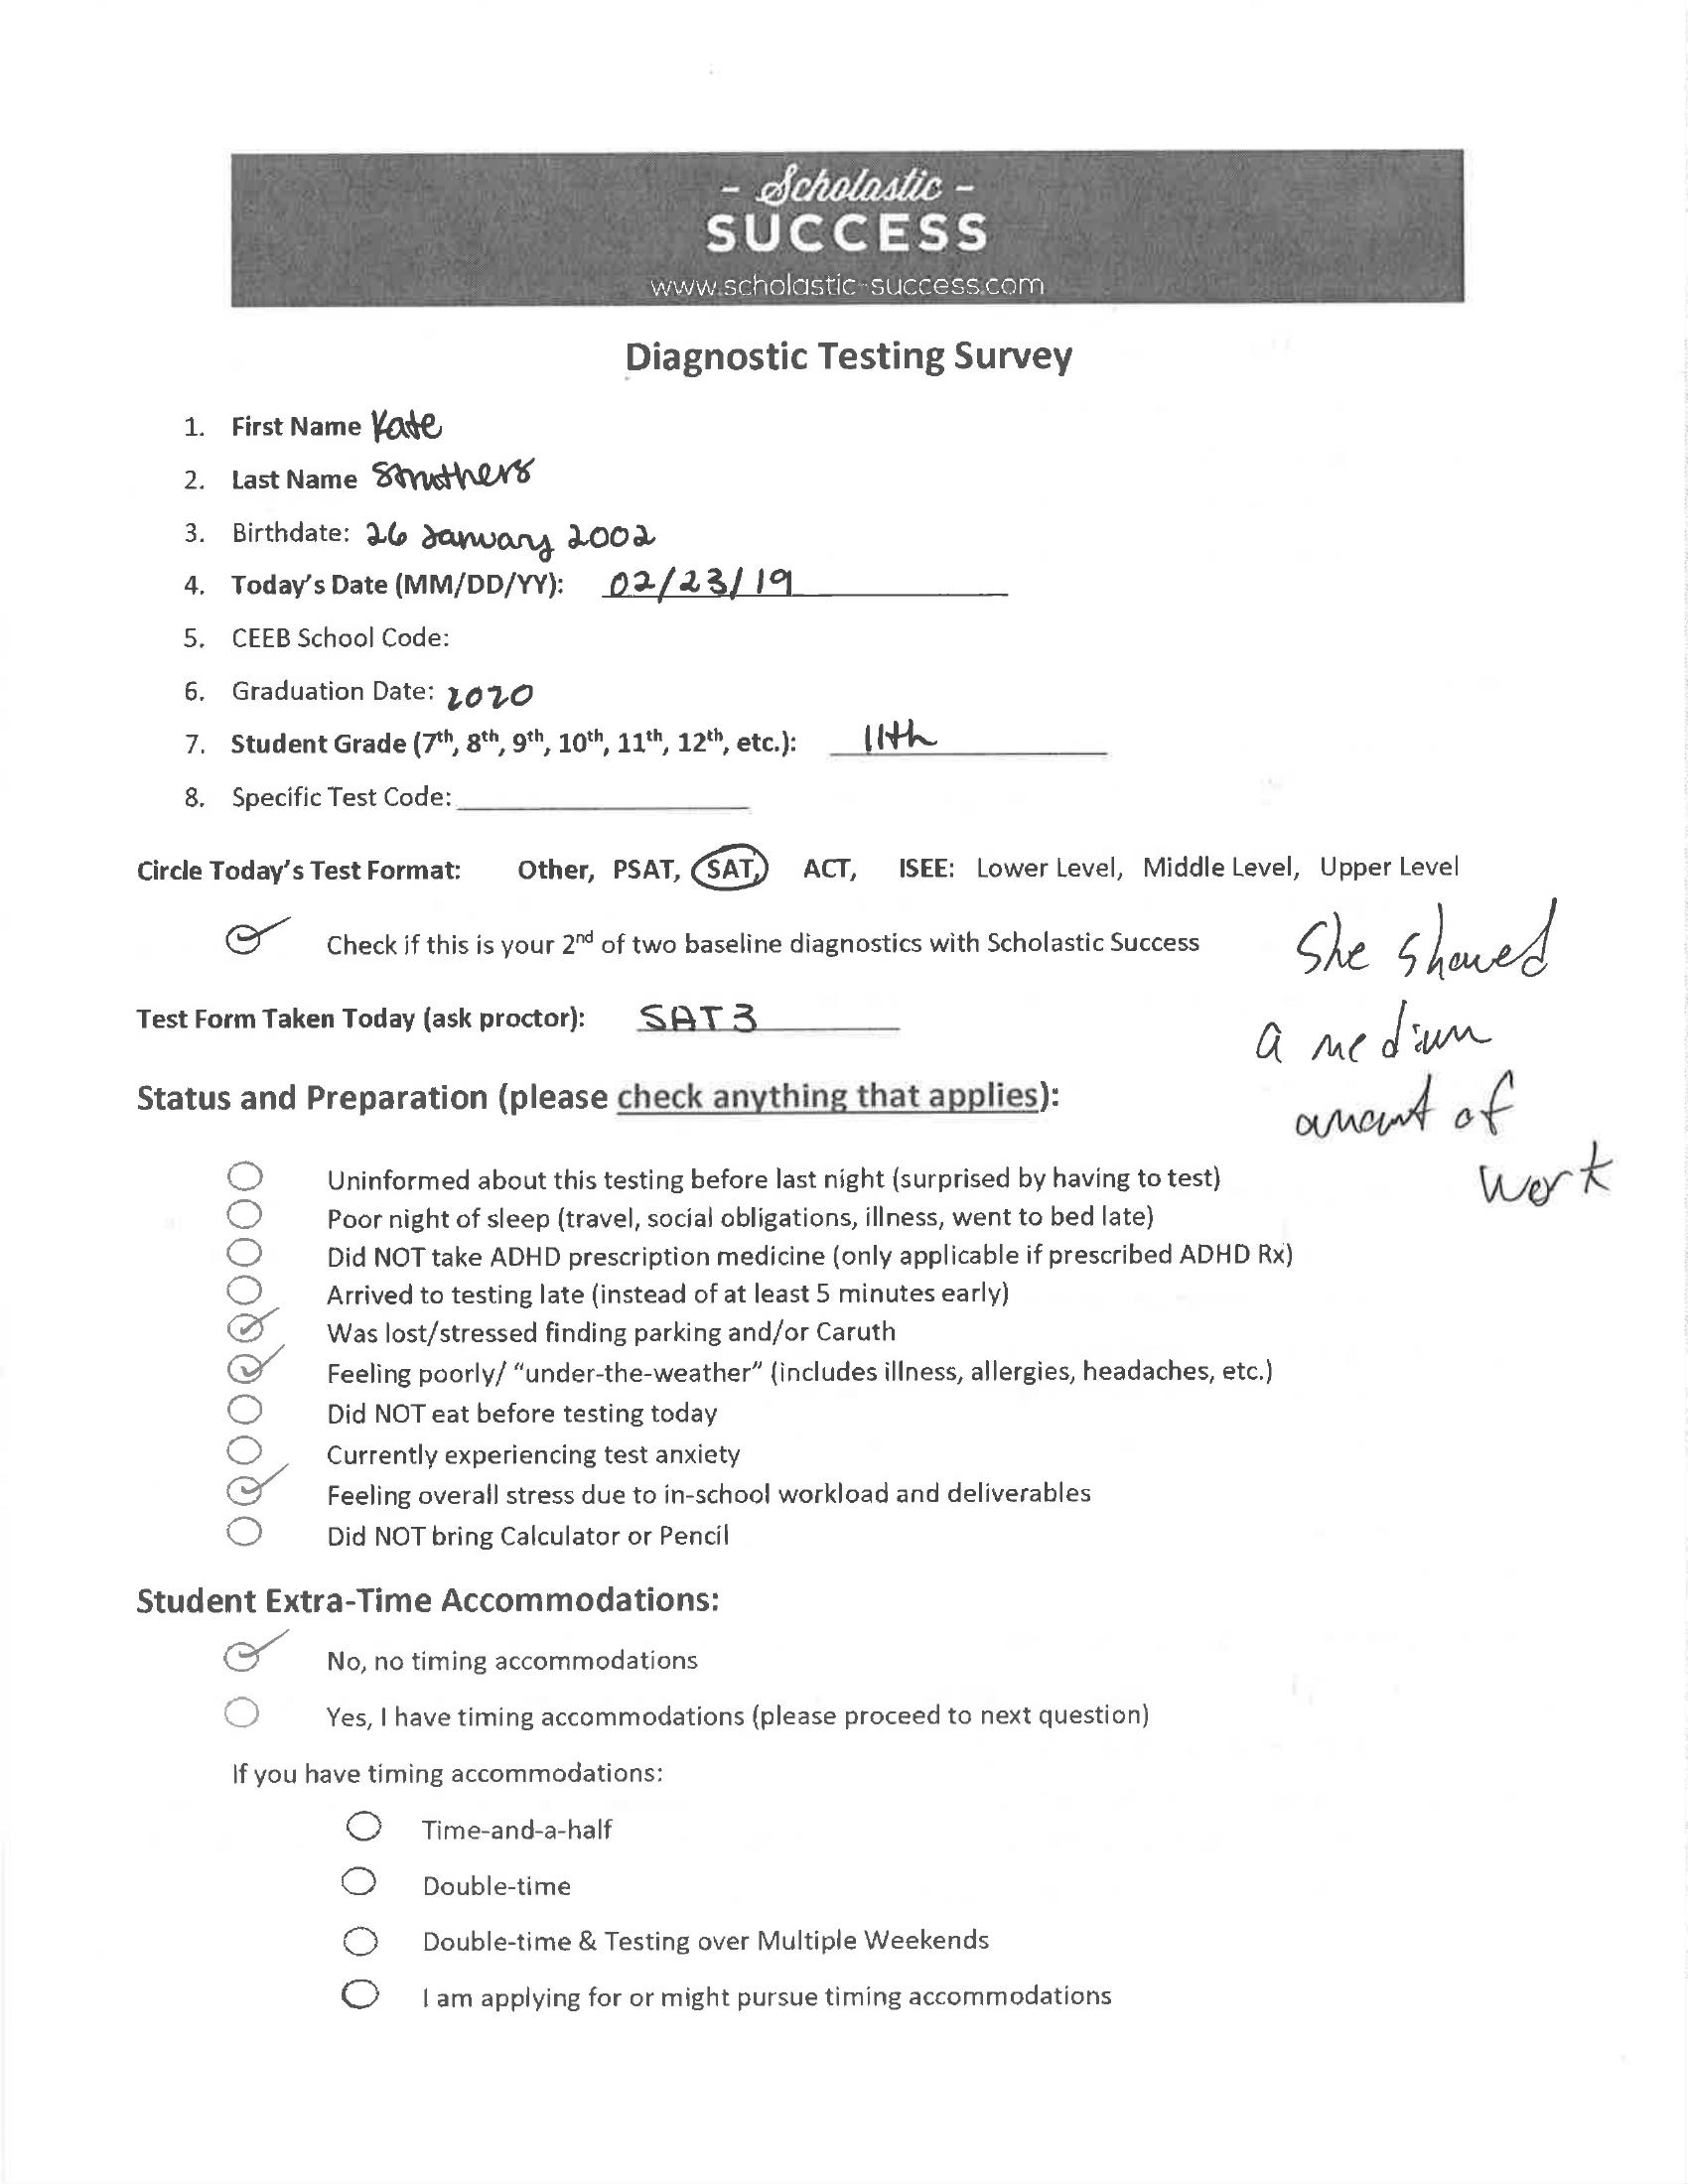 - Scholastic -
SUCCESS
www.scholastic-success.com
Diagnostic Testing Survey
1. First Name Kate
2. Last Name Smithers
3. Birthdate: 26 January 2002
4. Today's Date (MM/DD/YY): 02/23/19
5. CEEB School Code:
6. Graduation Date: 2020
7. Student Grade (7th, 8th, 9th, 10th, 11th, 12th, etc.): 11th
8. Specific Test Code:
Circle Today's Test Format: Other, PSAT, SAT, ACT, ISEE: Lower Level, Middle Level, Upper Level
Check if this is your 2nd of two baseline diagnostics with Scholastic Success
She showed
Test Form Taken Today (ask proctor): SAT 3
a medium
Status and Preparation (please check anything that applies):
amount of
work
Uninformed about this testing before last night (surprised by having to test)
Poor night of sleep (travel, social obligations, illness, went to bed late)
Did NOT take ADHD prescription medicine (only applicable if prescribed ADHD Rx)
Arrived to testing late (instead of at least 5 minutes early)
Was lost/stressed finding parking and/or Caruth
Feeling poorly/ "under-the-weather" (includes illness, allergies, headaches, etc.)
Did NOT eat before testing today
Currently experiencing test anxiety
Feeling overall stress due to in-school workload and deliverables
Did NOT bring Calculator or Pencil
Student Extra-Time Accommodations:
No, no timing accommodations
Yes, I have timing accommodations (please proceed to next question)
If you have timing accommodations:
Time-and-a-half
Double-time
Double-time & Testing over Multiple Weekends
I am applying for or might pursue timing accommodations